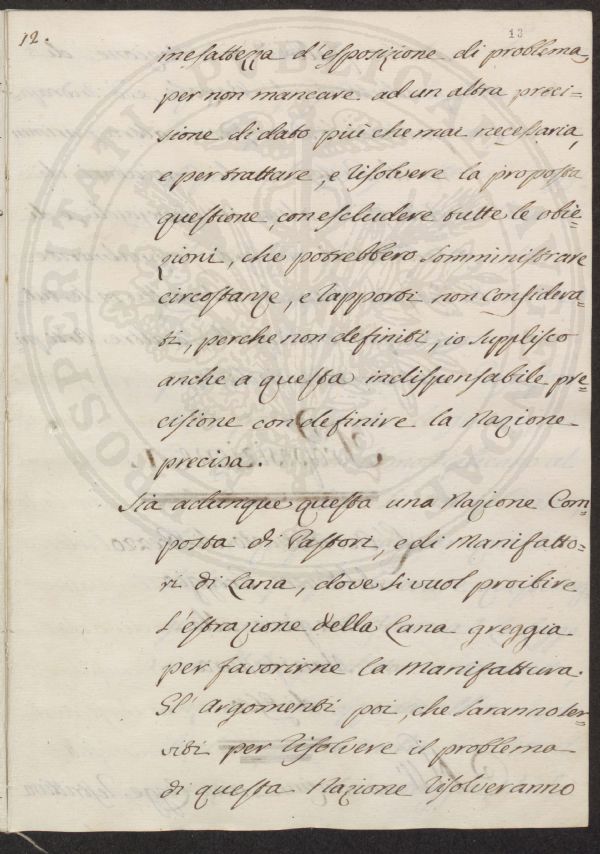 12.
13
inesattezza d'esposizione di problema,
per non mancare ad un altra preci=
sione di dato più che mai necessaria,
e per trattare, e risolvere la proposta
questione, con escludere tutte le obie=
zioni, che potrebbero somministrare
circostanze, e rapporti non considera=
ti, perche non definiti, io supplisco
anche a questa indispensabile pre=
cisione con definire la Nazione
precisa.
Sia adunque questa una Nazione Com=
posta di Pastori, e di Manifatto=
ri di Lana, dove si vuol proibire
l'estrazione della Lana greggia
per favorirne la Manifattura.
Gl'argomenti poi, che saranno ser=
viti per risolvere il problema
di questa Nazione risolveranno